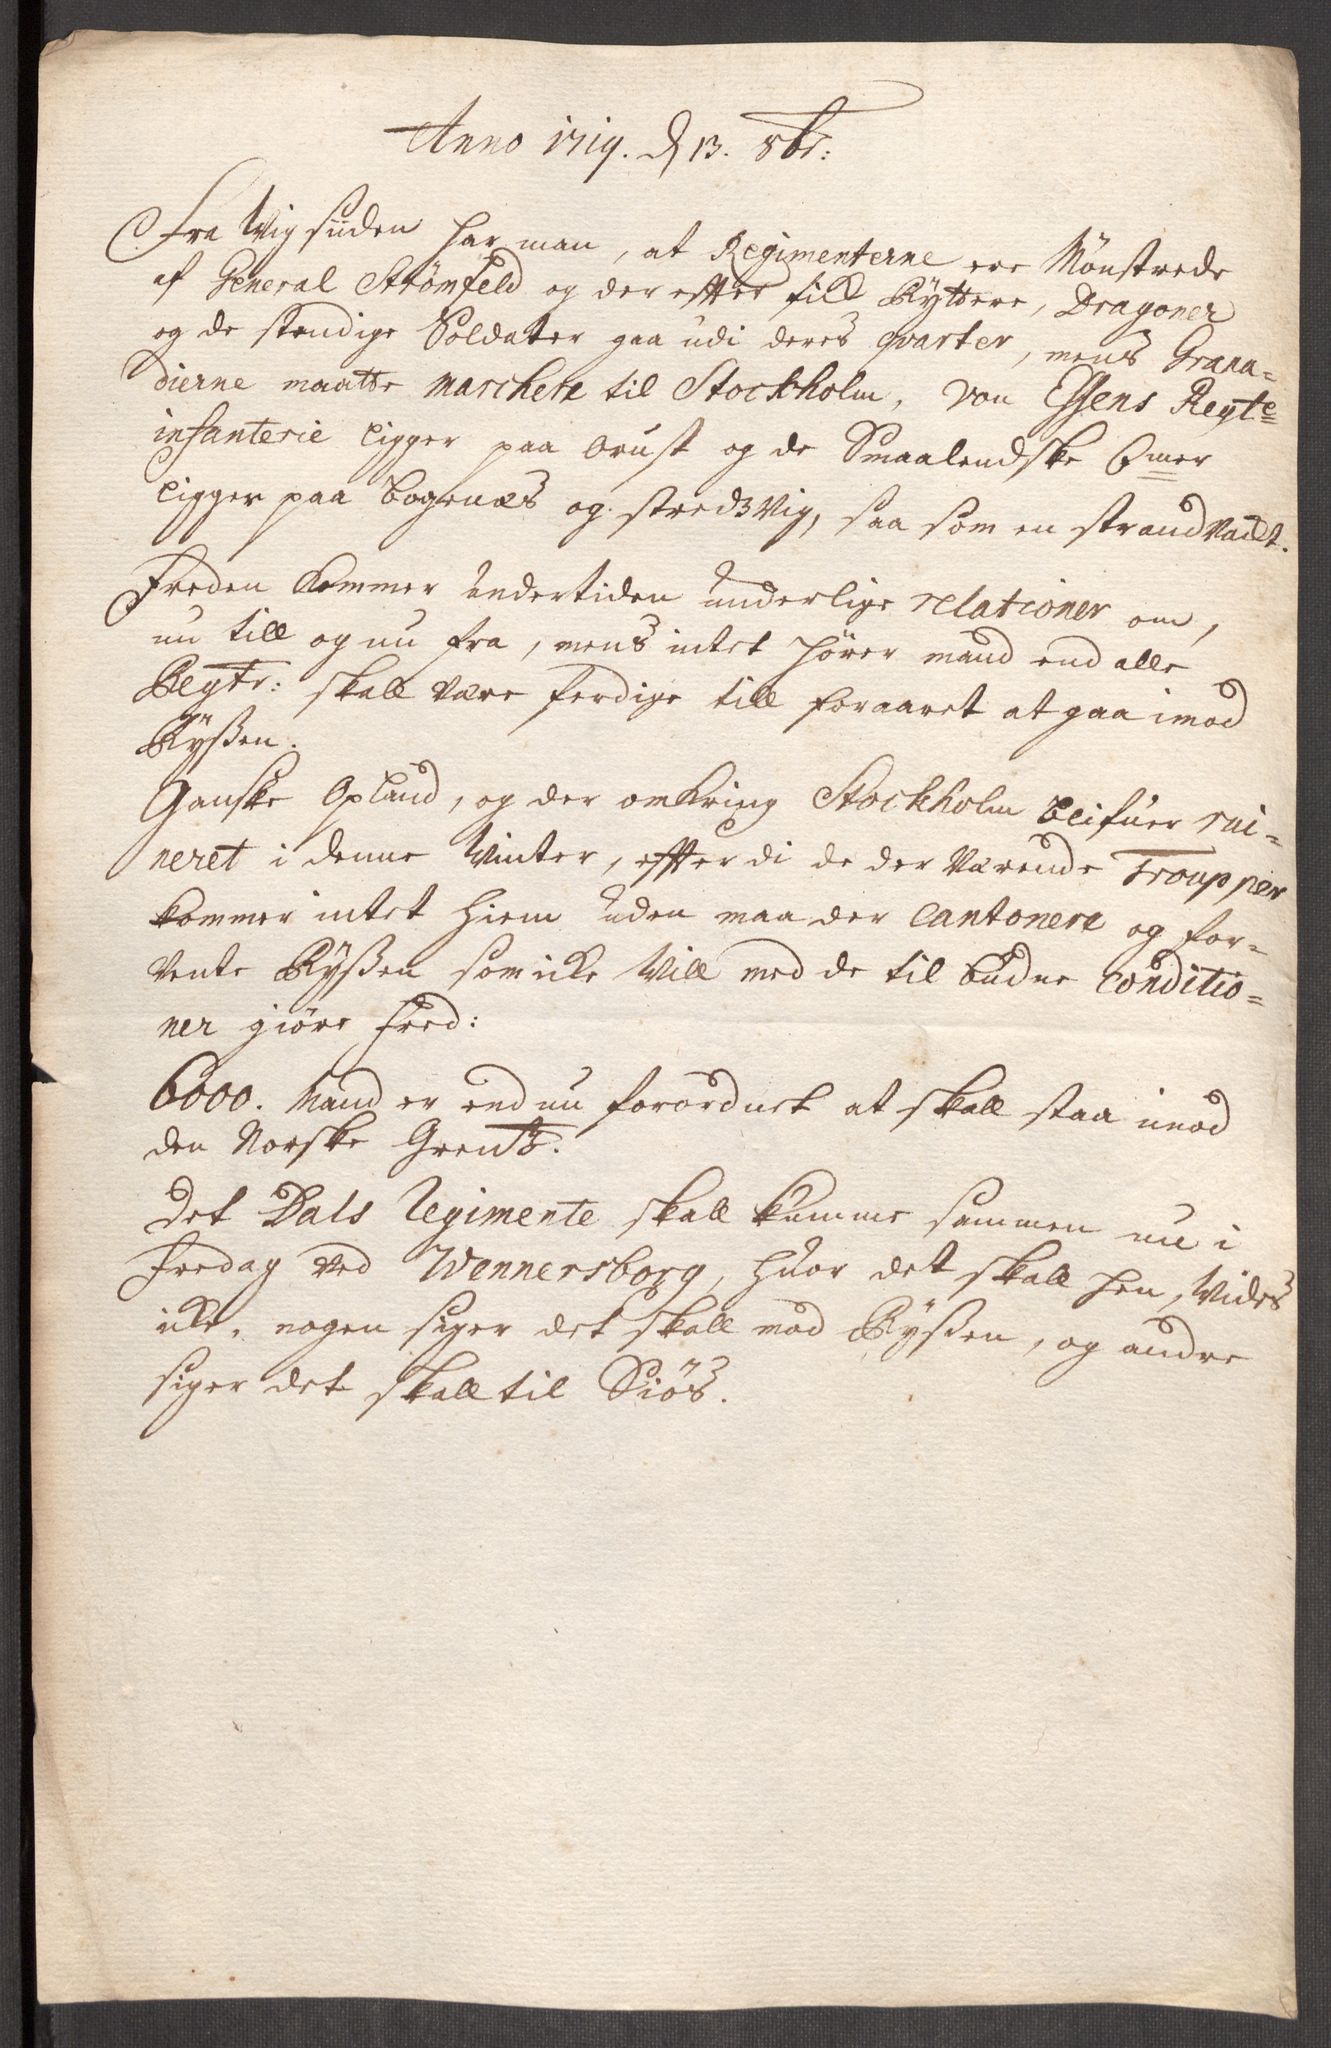 Anno 1719. d 13. 8br:
Fra Wigsiiden har man, at Regimenterne ere Mönstrede
af General Strömfeld og der effter till Ryttere, Dragoner
og de stendige Soldater gaa udi deres qvarter, mens Grana=
dierne maatte marchere til Stockholm, von Essens Regte
infanterie ligger paa Orust og de Smaalendske
ligger paa Bogenæs og stredzvig, saa som en strandvact.
Freden kommer undertiden underlige relationer om,
nu till og nu fra, mens intet hörer mand end alle
Regtr: skall være ferdige till foraaret at gaa imod
Rÿssen.
Ganske Opland, og der omkring Stockholm blifuer rui=
neret i denne Winter, effterdi de der værende Troupper
kommer intet hiem uden maa der cantonere og for=
vente Rÿssen som icke vill med de til budne conditio=
ner giöre fred:
6000. Mand er end nu forordnet at skall staa imod
den Norske Grentz.
Det Dals Regimente skall komme sammen nu i
fredag ved Wennersborg, huor det skall hen, vides
icke, nogen siger det skall mod Rÿssen, og andre
siger det skall til Siös.